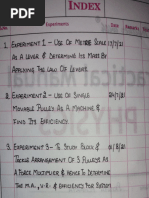 INDEX
Experiments
Date
Remarks
1. EXPERIMENT 1 - USE OF METRE SCALE
AS A LEVER & DETERMINE ITS MASS BY
APPLYING THE LAW OF LEVERS
2. EXPERIMENT 2 - USE OF SINGLE
MOVABLE PULLEY AS A MACHINE &
FIND ITS EFFICIENCY.
3. EXPERIMENT 3 - TO STUDY BLOCK &
TACKLE ARRANGEMENT OF 3 PULLEYS AS
A FORCE MULTIPLIER & HENCE TO DETERMINE
THE M.A., V.R. & EFFICIENCY FOR SYSTEM